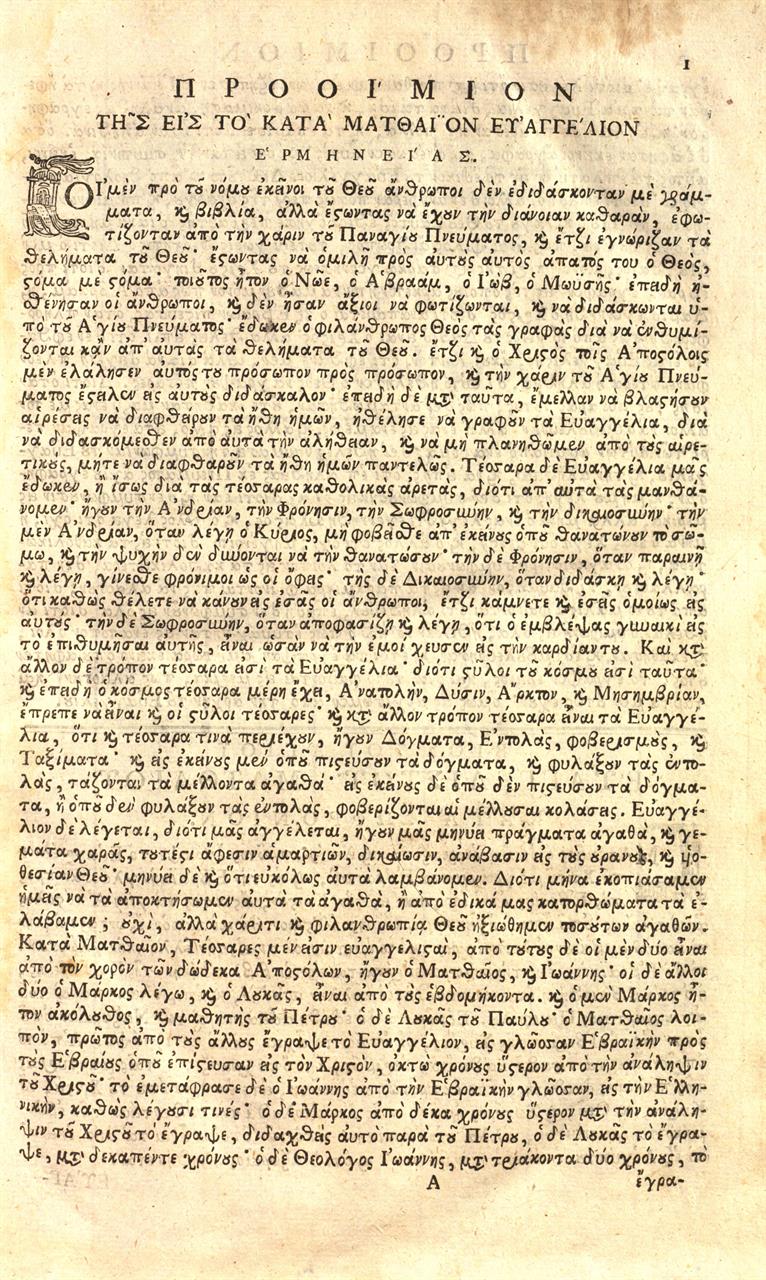 1
ΠΡΟΟΙ´ΜΙΟΝ
ΤΗ͂Σ ΕΙ᾿Σ ΤΟ` ΚΑΤΑ` ΜΑΤΘΑΙ͂ΟΝ ΕΥ᾿ΑΓΓΕ´ΛΙΟΝ
Ε῾ΡΜΗΝΕΙ´ΑΣ.
ΟΙ῾ μὲν πρὸ τοῦ νόμου ἐκεῖνοι τοῦ Θεοῦ ἄνθρωποι δὲν ἐδιδάσκονταν μὲ γράμ-
ματα, καὶ βιβλία, ἀλλὰ ἔστωντας νὰ ἔχουν τὴν διάνοιαν καθαρὰν, ἐφω-
τίζονταν ἀπὸ τὴν χάριν τοῦ Παναγίου Πνεύματος, καὶ ἔτζι ἐγνώριζαν τὰ
θελήματα τοῦ Θεοῦ· ἔστωντας νὰ ὁμιλῇ πρὸς αὐτοὺς αὐτὸς ἀπατός του ὁ Θεὸς,
στόμα μὲ στόμα· τοιοῦτος ἦτον ὁ Νῶε, ὁ Α᾿βραὰμ, ὁ Ι᾿ὼβ, ὁ Μωϋσῆς· ἐπειδὴ ἠ-
θένησαν οἱ ἄνθρωποι, καὶ δὲν ἦσαν ἄξιοι νὰ φωτίζωνται, καὶ νὰ διδάσκωνται ὑ-
πὸ τοῦ Α῾γίου Πνεύματος· ἔδωκεν ὁ φιλάνθρωπος Θεὸς τὰς γραφὰς διὰ νὰ ἐνθυμί-
ζονται κᾂν ἀπ᾿ αὐτὰς τὰ θελήματα τοῦ Θεοῦ. ἔτζι καὶ ὁ Χριστὸς τοῖς Α᾿ποστόλοις
μὲν ἐλάλησεν αὐτὸς του πρόσωπον πρὸς πρόσωπον, καὶ τὴν χάριν τοῦ Α῾γίου Πνεύ-
ματος ἔστειλεν εἰς αὐτοὺς διδάσκαλον· ἐπειδὴ δὲ μετὰ ταῦτα, ἔμελλαν νὰ βλαστήσουν
αἱρέσεις νὰ διαφθείρουν τὰ ἤθη ἡμῶν, ἠθέλησε νὰ γραφοῦν τὰ Εὐαγγέλια, διὰ
νὰ διδασκόμεσθεν ἀπὸ αὐτὰ τὴν ἀλήθειαν, καὶ νὰ μὴ πλανηθῶμεν ἀπὸ τοὺς αἱρε-
τικοὺς, μήτε νὰ διαφθαροῦν τὰ ἤθη ἡμῶν παντελῶς. Τέσσαρα δὲ Εὐαγγέλια μᾶς
ἔδωκεν, ἢ ἴσως διὰ τὰς τέσσαρας καθολικὰς ἀρετὰς, διότι ἀπ᾿ αὐτὰ τὰς μανθά-
νομεν· ἤγουν τὴν Α᾿νδρείαν, τὴν Φρόνησιν, τὴν Σωφροσύνην, καὶ τὴν δικαιοσύνην· τὴν
μὲν Α᾿νδρείαν, ὅταν λέγῃ ὁ Κύριος, μὴ φοβεῖσθε ἀπ᾿ ἐκείνους ὁποῦ θανατώνουν τὸ σῶ-
μα, καὶ τὴν ψυχὴν δὲν δύνονται νὰ τὴν θανατώσουν· τὴν δὲ Φρόνησιν, ὅταν παραινῇ
καὶ λέγῃ, γίνεσθε φρόνιμοι ὡς οἱ ὄφεις· τῆς δὲ Δικαιοσύνην, ὅταν διδάσκῃ καὶ λέγῃ·
ὅτι καθὼς θέλετε νὰ κάνουν εἰς ἐσᾶς οἱ ἄνθρωποι, ἔτζι κάμνετε καὶ ἐσεῖς ὁμοίως εἰς
αὐτούς· τὴν δὲ Σωφροσύνην, ὅταν ἀποφασίζῃ καὶ λέγῃ, ὅτι ὁ ἐμβλέψας γυναικὶ εἰς
τὸ ἐπιθυμῆσαι αὐτῆς, εἶναι ὡσὰν νὰ τὴν ἐμοίχευσεν εἰς τὴν καρδίαν του. Καὶ κατὰ
ἄλλον δὲ τρόπον τέσσαρα εἰσὶ τὰ Εὐαγγέλια· διότι στύλοι τοῦ κόσμου εἰσὶ ταῦτα·
καὶ ἐπειδὴ ὁ κόσμος τέσσαρα μέρη ἔχει, Α᾿νατολὴν, Δύσιν, Α῎ρκτον, καὶ Μησημβρίαν,
ἔπρεπε νὰ εἶναι καὶ οἱ στύλοι τέσσαρες· καὶ κατὰ ἄλλον τρόπον τέσσαρα εἶναι τὰ Εὐαγγέ-
λια, ὅτι καὶ τέσσαρα τινὰ περιέχουν, ἤγουν Δόγματα, Ε᾿ντολὰς, φοβερισμοὺς, καὶ
Ταξίματα· καὶ εἰς ἐκείνους μὲν ὁποῦ πιστεύσουν τὰ δόγματα, καὶ φυλάξουν τὰς ἐντο-
λὰς, τάζονται τὰ μέλλοντα ἀγαθά· εἰς ἐκείνους δὲ ὁποῦ δὲν πιστεύσουν τὰ δόγμα-
τα, ἢ ὁποῦ δὲν φυλάξουν τὰς ἐντολὰς, φοβερίζονται αἱ μέλλουσαι κολάσεις. Εὐαγγέ-
λιον δὲ λέγεται, διότι μᾶς ἀγγέλεται, ἤγουν μᾶς μηνύει πράγματα ἀγαθὰ, καὶ γε-
μάτα χαρᾶς, τουτέστι ἄφεσιν ἁμαρτιῶν, δικαίωσιν, ἀνάβασιν εἰς τοὺς οὐρανοὺς, καὶ υἱο-
θεσίαν Θεοῦ· μηνύει δὲ καὶ ὅτι εὐκόλως αὐτὰ λαμβάνομεν. Διότι μήνα ἐκοπιάσαμεν
ἡμεῖς νὰ τὰ ἀποκτήσωμεν αὐτὰ τὰ ἀγαθὰ, ἢ ἀπὸ ἐδικά μας κατορθώματα τὰ ἐ-
λάβαμεν; οὐχὶ, ἀλλὰ χάριτι καὶ φιλανθρωπίᾳ Θεοῦ ἠξιώθημεν τοσούτων ἀγαθῶν.
Κατὰ Ματθαῖον, Τέσσαρες μὲν εἰσιν εὐαγγελισταὶ, ἀπὸ τούτους δὲ οἱ μὲν δύο εἶναι
ἀπὸ τὸν χορὸν τῶν δώδεκα Α᾿ποστόλων, ἤγουν ὁ Ματθαῖος, καὶ Ιωάννης· οἱ δὲ ἄλλοι
δύο ὁ Μάρκος λέγω, καὶ ὁ Λουκᾶς, εἶναι ἀπὸ τοὺς ἑβδομήκοντα. καὶ ὁ μὲν Μάρκος ἦ-
τον ἀκόλουθος, καὶ μαθητὴς τοῦ Πέτρου· ὁ δὲ Λουκᾶς τοῦ Παύλου· ὁ Ματθαῖος λοι-
πὸν, πρῶτος ἀπὸ τοὺς ἄλλους ἔγραψε τὸ Εὐαγγέλιον, εἰς γλῶσσαν Ε῾βραϊκὴν πρὸς
τοὺς Ε῾βραίους ὁποῦ ἐπίστευσαν εἰς τὸν Χριστὸν, ὀκτὼ χρόνους ὕστερον ἀπὸ τὴν ἀνάληψιν
τοῦ Χριστοῦ· τὸ ἐμετάφρασε δὲ ὁ Ιωάννης ἀπὸ τὴν Ε῾βραϊκὴν γλῶσσαν, εἰς τὴν Ε῾λλη-
νικὴν, καθὼς λέγουσι τινές· ὁ δὲ Μάρκος ἀπὸ δέκα χρόνους ὕστερον μετὰ τὴν ἀνάλη-
ψιν τοῦ Χριστοῦ τὸ ἔγραψε, διδαχθεὶς αὐτὸ παρὰ τοῦ Πέτρου, ὁ δὲ Λουκᾶς τὸ ἔγρα-
ψε, μετὰ δεκαπέντε χρόνους· ὁ δὲ Θεολόγος Ιωάννης, μετὰ τριάκοντα δύο χρόνους, τὸ
Α
ἔγρα-